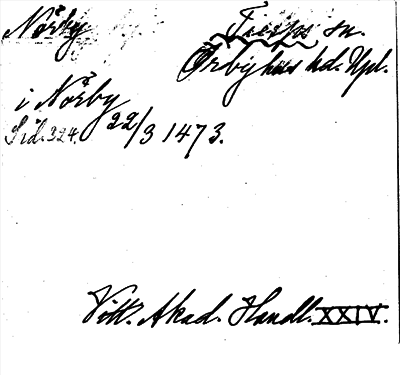 Norby Tierps sn.
Örbyhus hd. Upl.
i Norby
Sid. 324. 22/3 1473.
Vitt. Akad. Handl. XXIV.